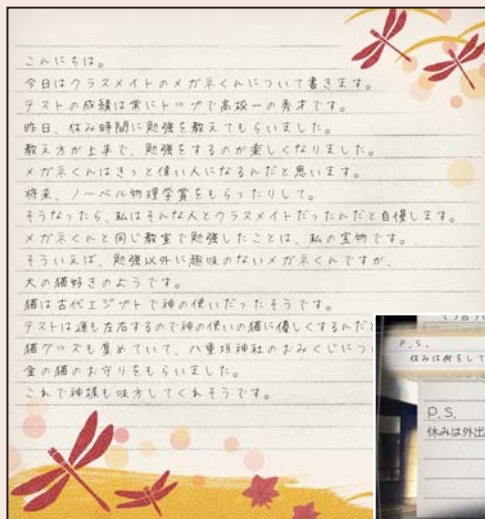 こんにちは。
今日はクラスメイトのメガネくんについて書きます。
テストの成績は常にトップで高坂一の秀才です。
昨日、休み時間に勉強を教えてもらいました。
教え方が上手で、勉強をするのが楽しくなりました。
メガネくんはきっと偉い人になるんだと思います。
将来、ノーベル物理学賞をもらったりして。
そうなったら、私はそんな人とクラスメイトだったんだと自慢します。
メガネくんと同じ教室で勉強したことは、私の宝物です。
そういえば、勉強以外に趣味のないメガネくんですが、
大の猫好きのようです。
猫は古代エジプトで神の使いだったそうです。
テストは運も左右するので神の使いの猫に優しくするんだ
猫グッズも集めていて、八重垣神社のおみくじについ
金の猫のお守りをもらいました。
これで神様も味方してくれそうです。
P.S.
休みは何をして
P.S.
休みは外出